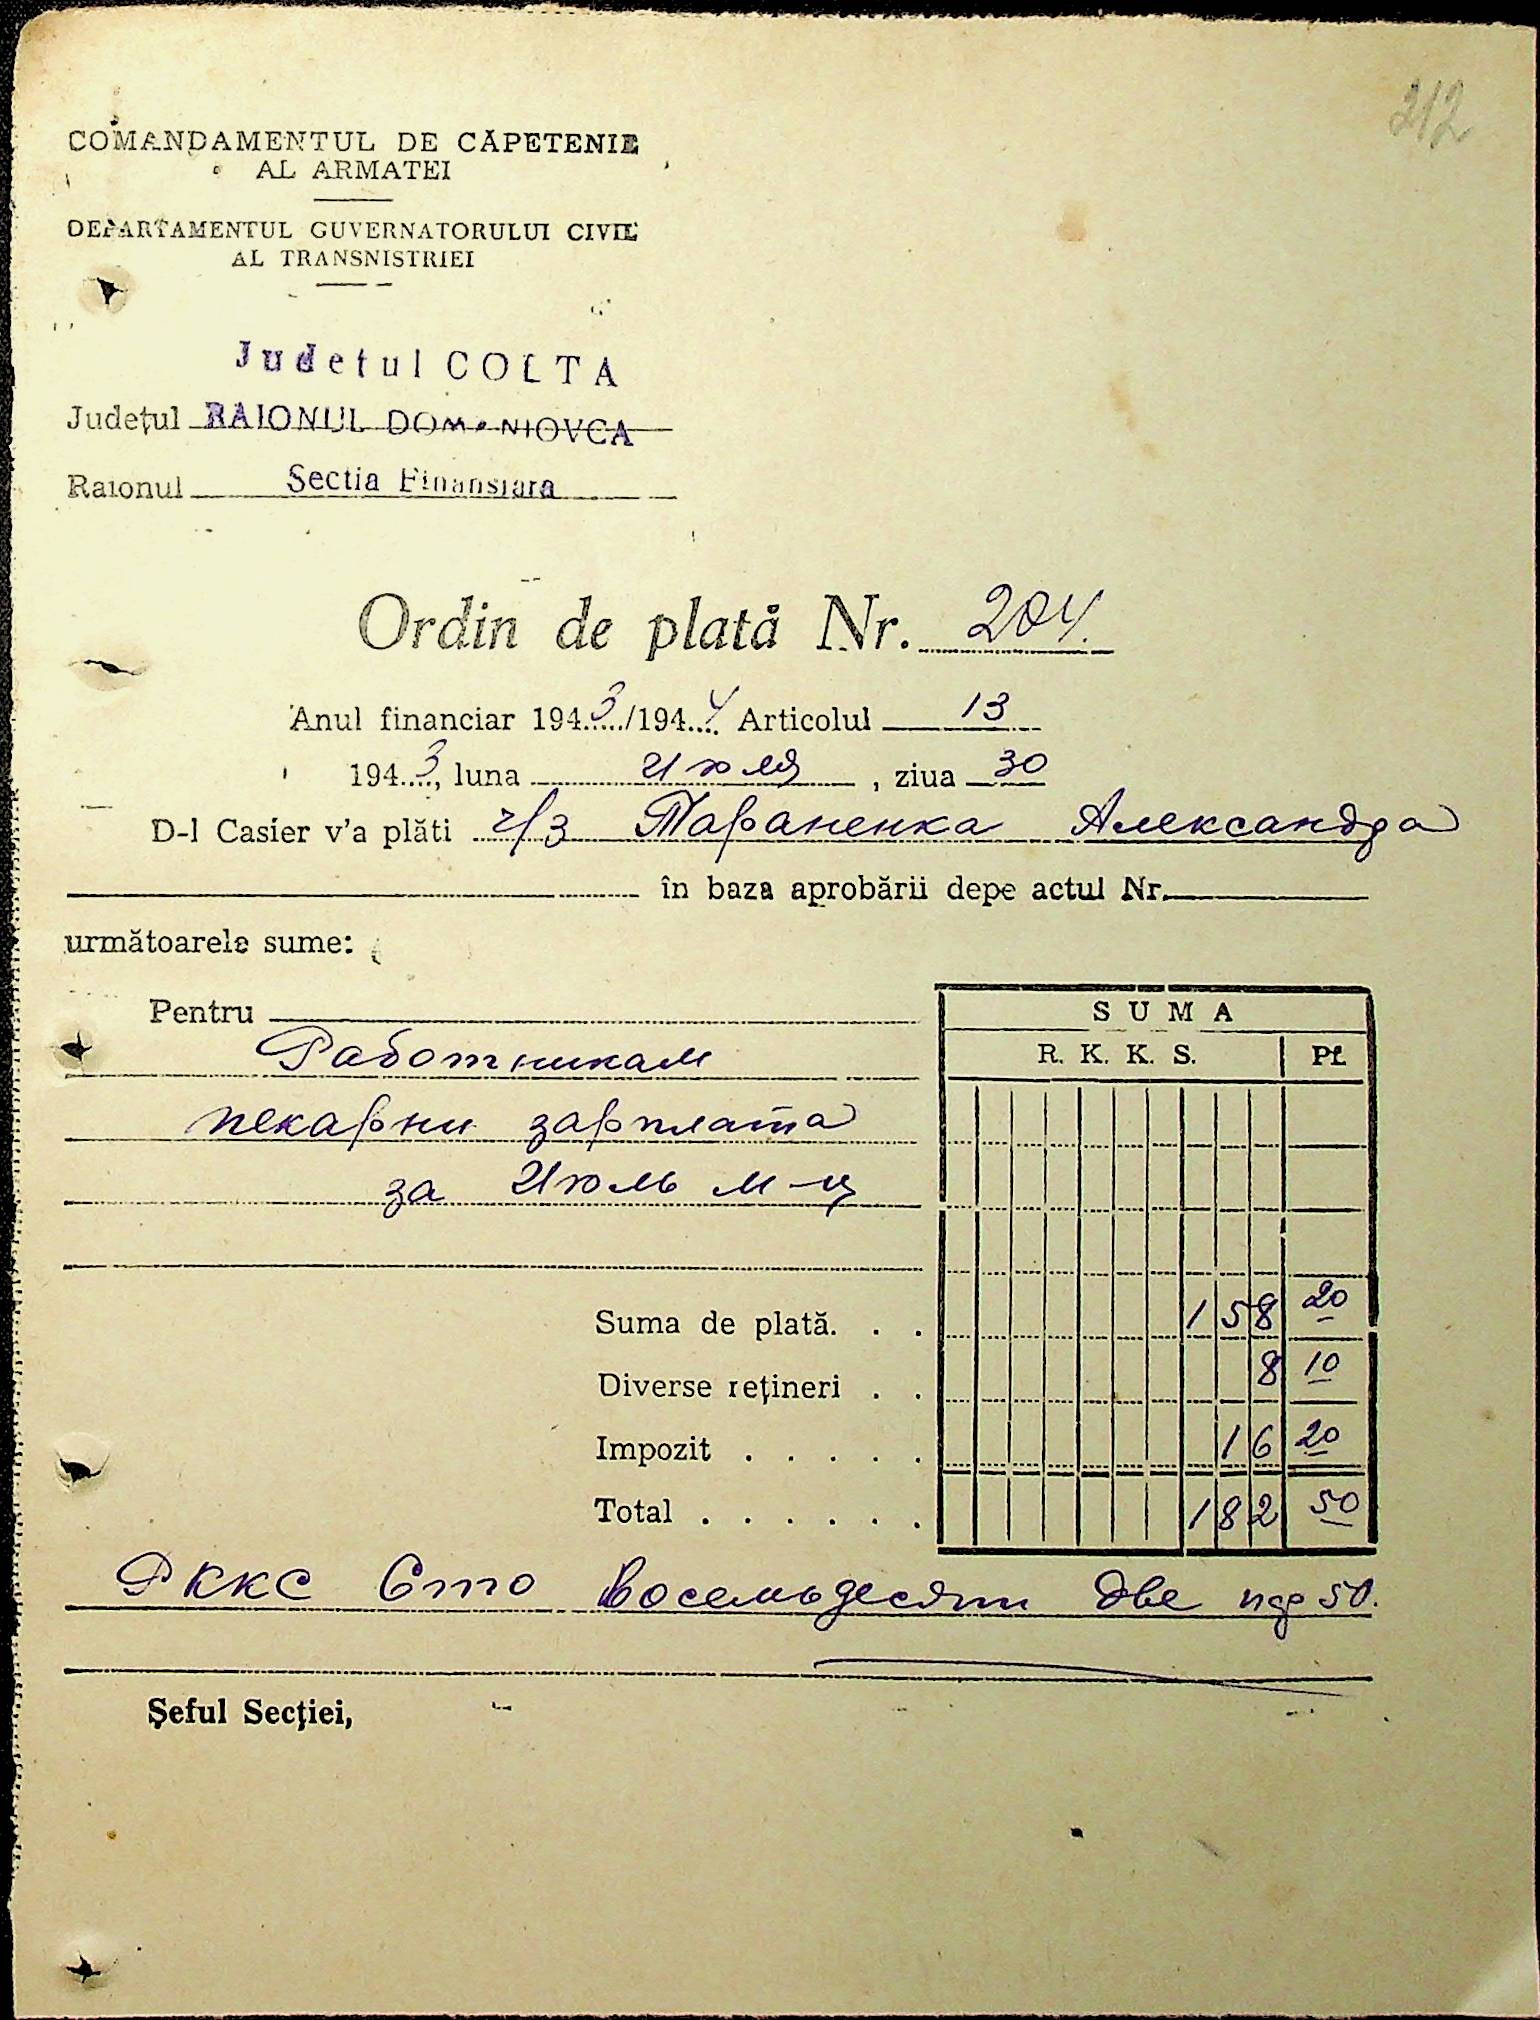 212
COMANDAMENTUL DE CĂPETENIE
AL ARMATEI
DEPARTAMENTUL GUVERNATORULUI CIVIL
AL TRANSNISTRIEI
Judetul COLTA
Județul RAIONUL DOMANIOVCA
Raionul Sectia Finansiara
Ordin de plată Nr. 204.
Anul financiar 1943/1944 Articolul 13
1943, luna Июля, ziua 30
D-l Casier v'a plăti ч/з Тараненка Александра
în baza aprobării depe actul Nr.
următoarele sume:
Pentru
SUMA
Работникам
R. K. K. S. Pf.
пекарни зарплата
за Июль м-ц
Suma de plată. . . 158 20
Diverse rețineri . . 8 10
Impozit . . . . . 16 20
Total . . . . . . 182 50
РККС Сто Восемьдесят две пф 50.
Șeful Secției,